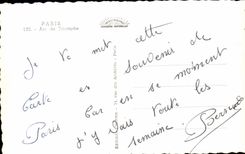 PARIS
Arc de Triomphe
Je te met cette
Carte en souvenir de
Paris car en se moment
j'y vais toute les
semaine.